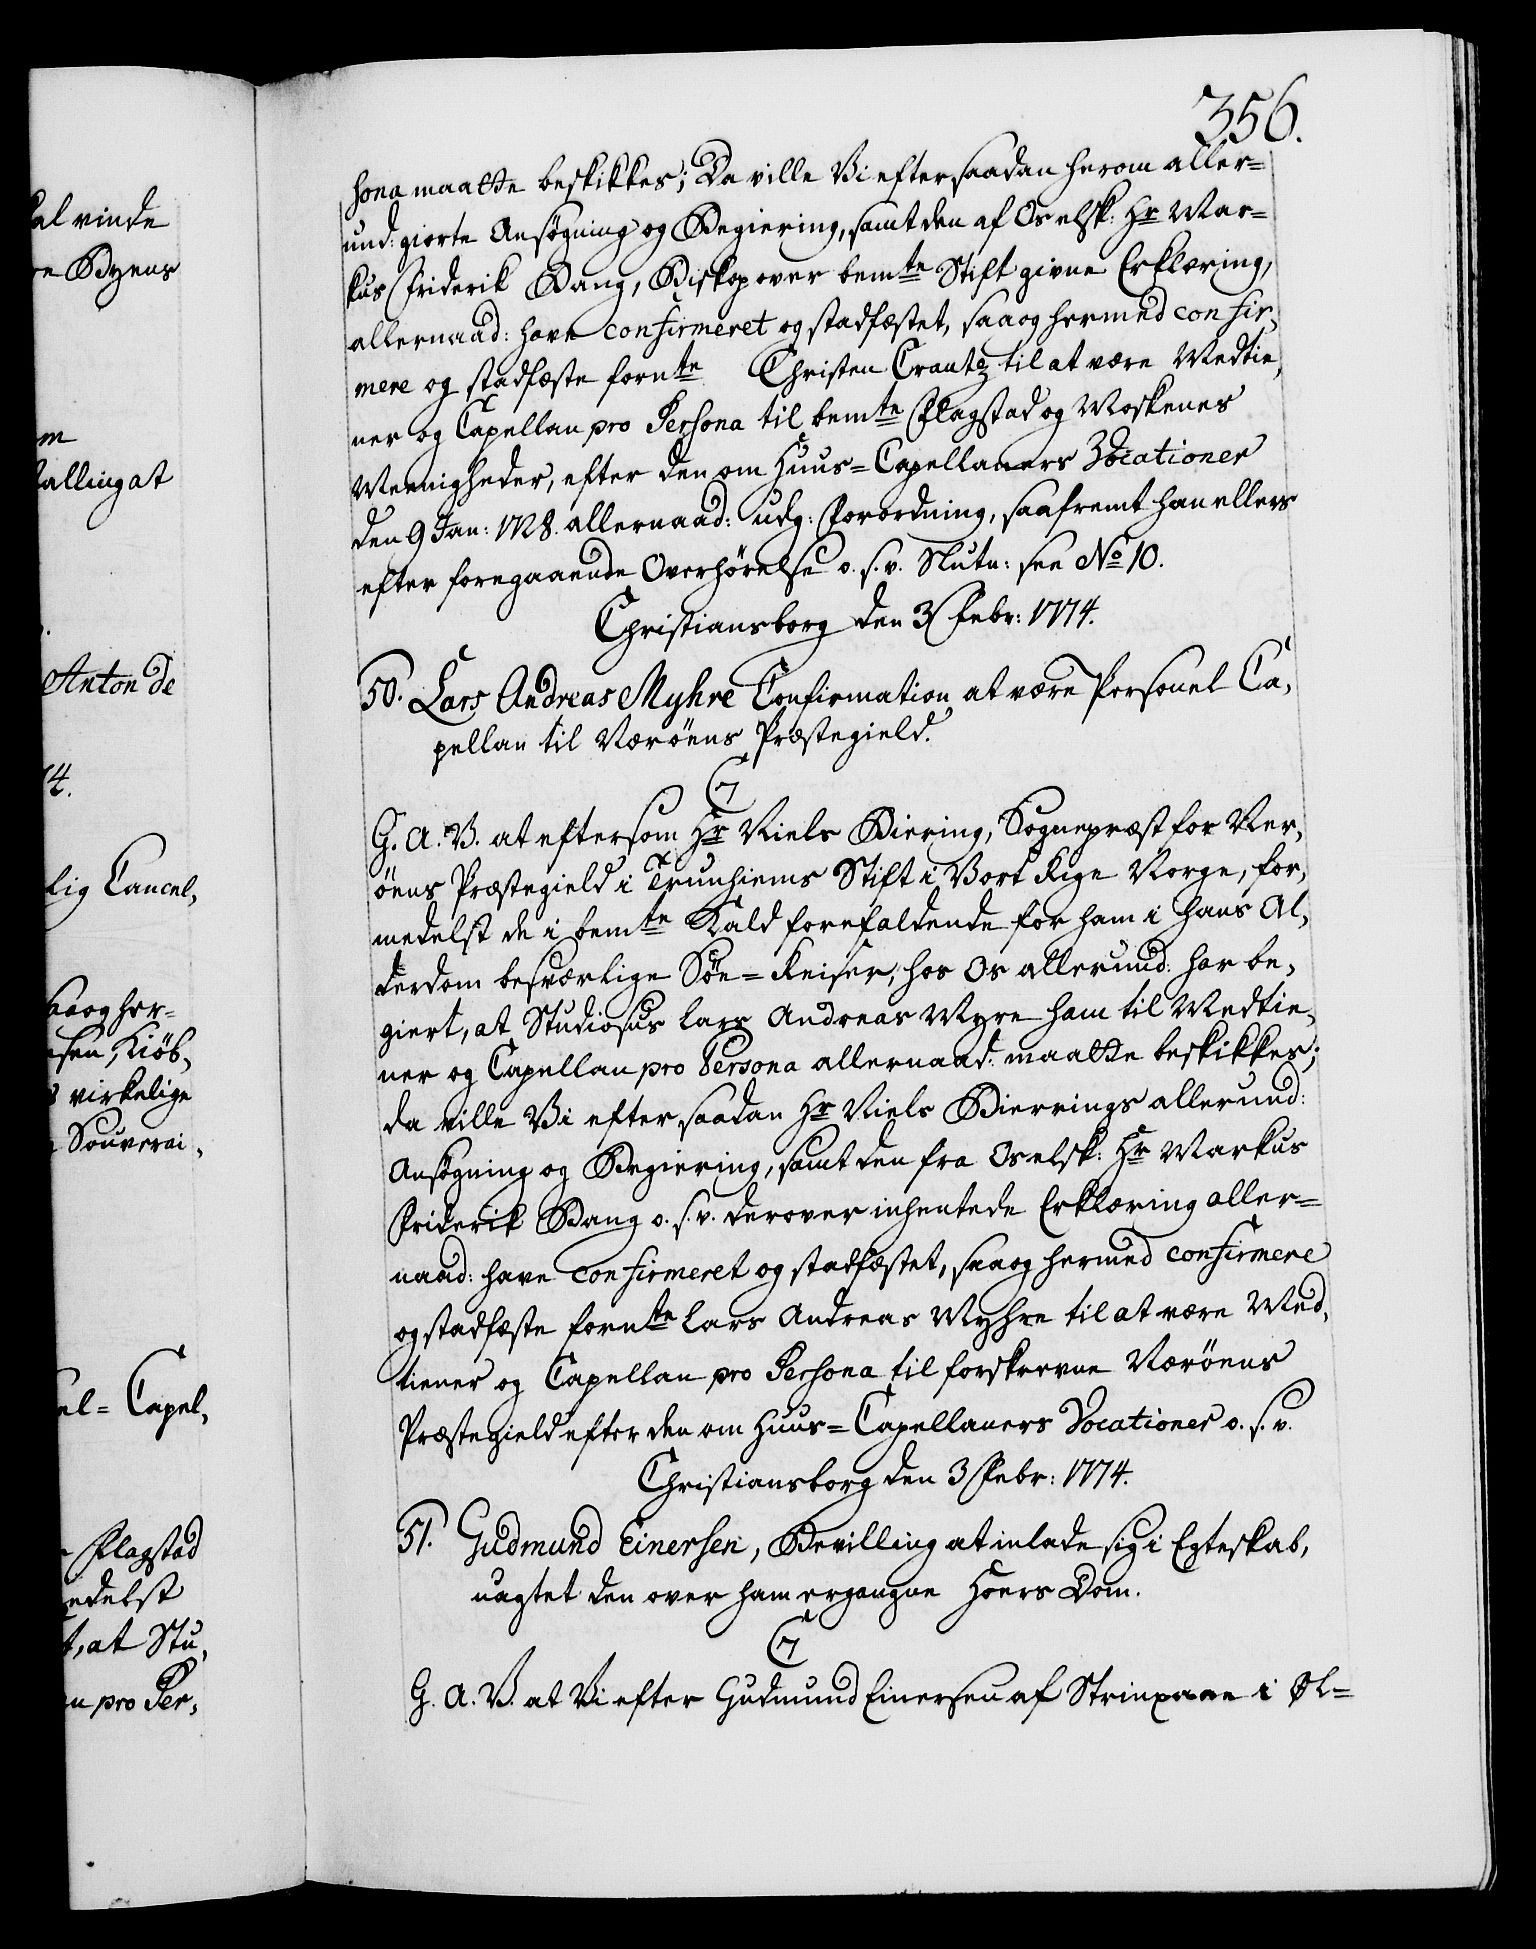 356.
sona maatte beskikkes; Da ville Vi efter saadan herom aller=
und: giorte Ansøgning og Begiering, samt den af Os elsk: Hr Mar=
kus Friderik Bang, Biskop over bemte Stift givne Erklæring,
allernaad: have confirmeret og stadfæstet, saa og hermed confir,
mere og stadfæste fornte Christen Crantz til at være Medtie,
ner og Capellan pro Persona til bemte Flagstad og Moskenes
Meenigheder, efter den om Huus=Capellaners Vocationer
den 9 Jan: 1728. allernaad: udg: Forordning, saafremt han ellers
efter foregaaende Overhørelse o. s. v. Slutn: see No 10.
Christiansborg den 3 Febr: 1774.
50. Lars Andreas Myhre Confirmation at være Personel Ca,
pellan til Værøens Præstegield.
C7
G. A. V. at eftersom Hr Niels Biering, Sognepræst for Vær,
øens Præstegield i Trunhiems Stift i Vort Rige Norge, for,
medelst de i bemte Kald forefaldende for ham i hans Al,
derdom besværlige Søe=Reiser, hos Os allerund: har be,
giert, at Studiosus Lars Andreas Myre ham til Medtie,
ner og Capellan pro Persona allernaad: maatte beskikkes;
da ville Vi efter saadan Hr Niels Bierrings allerund:
Ansøgning og Begiering, samt den fra Os elsk: Hr Markus
Friderik Bang o. s. v. derover inhentede Erklæring aller=
naad: have confirmeret og stadfæstet, saa og hermed confirmere
og stadfæste fornte Lars Andreas Myhre til at være Med,
tiener og Capellan pro Persona til forskrevne Værøens
Præstegield efter den om Huus=Capellaners Vocationer o. s. v.
Christiansborg den 3 Febr: 1774.
51. Gudmund Einersen, Bevilling at indlade sig i Egteskab,
uagtet den over ham ergangne Hoers Dom.
C7
G. A. V. at Vi efter Gudmund Einersen af i Øl=
al vinde
re Byens
m
talling at
Anton de
74.
lig Cancel,
saa og her=
sen, Kiøb,
s virkelige
Souverai,
el= Capel,
Flagstad
edelst
t, at Stu,
an pro Per,